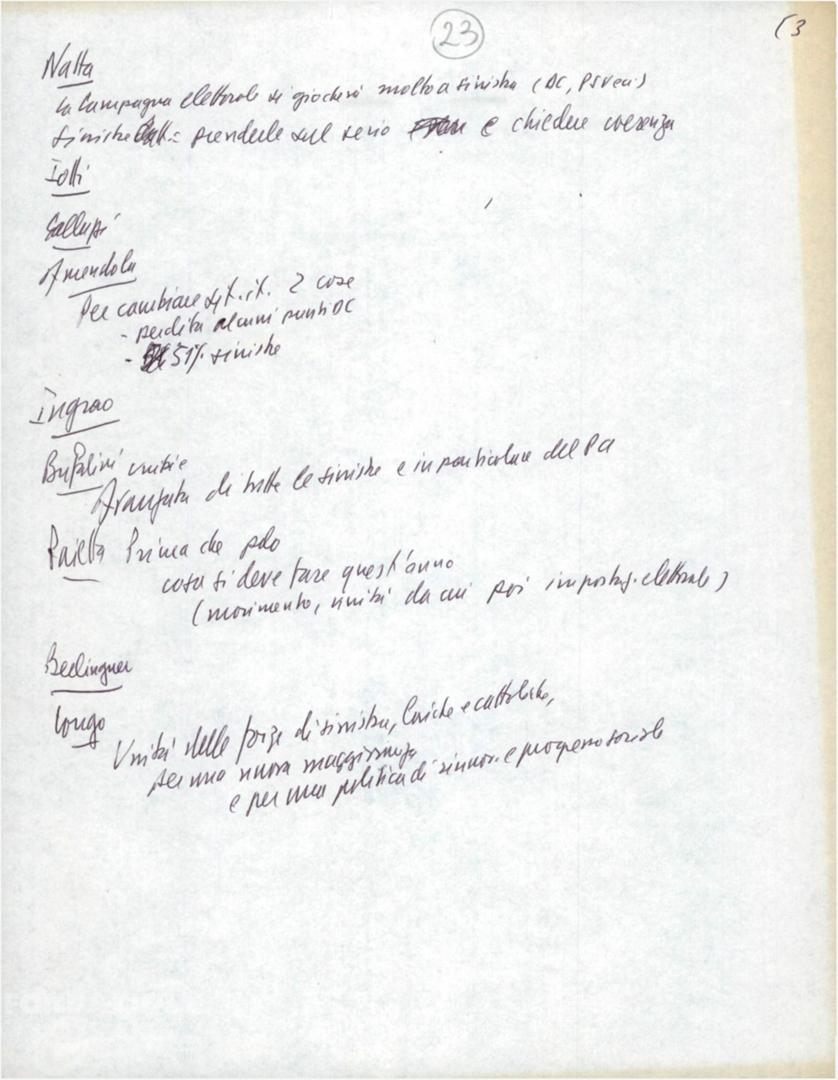 23
(3
Natta
La Campagna elettorale si giocherà molto a sinistra (DC, PSI ecc.)
Sinistre Catt.: prenderle sul serio e chiedere coerenza
Iotti
Galluzzi
Amendola
Per cambiare sit. it. 2 cose
- perdita alcuni punti DC
- 51% sinistre
Ingrao
Bufalini unità e
Avanzata di tutte le sinistre e in particolare del PCI
Paietta Prima che pdo
cosa si deve fare quest'anno
(movimento, unità da cui poi impostaz. elettorale)
Berlinguer
Longo
Unità delle forze di sinistra, laiche e cattoliche,
per una nuova maggioranza
e per una politica di rinnov. e progresso sociale